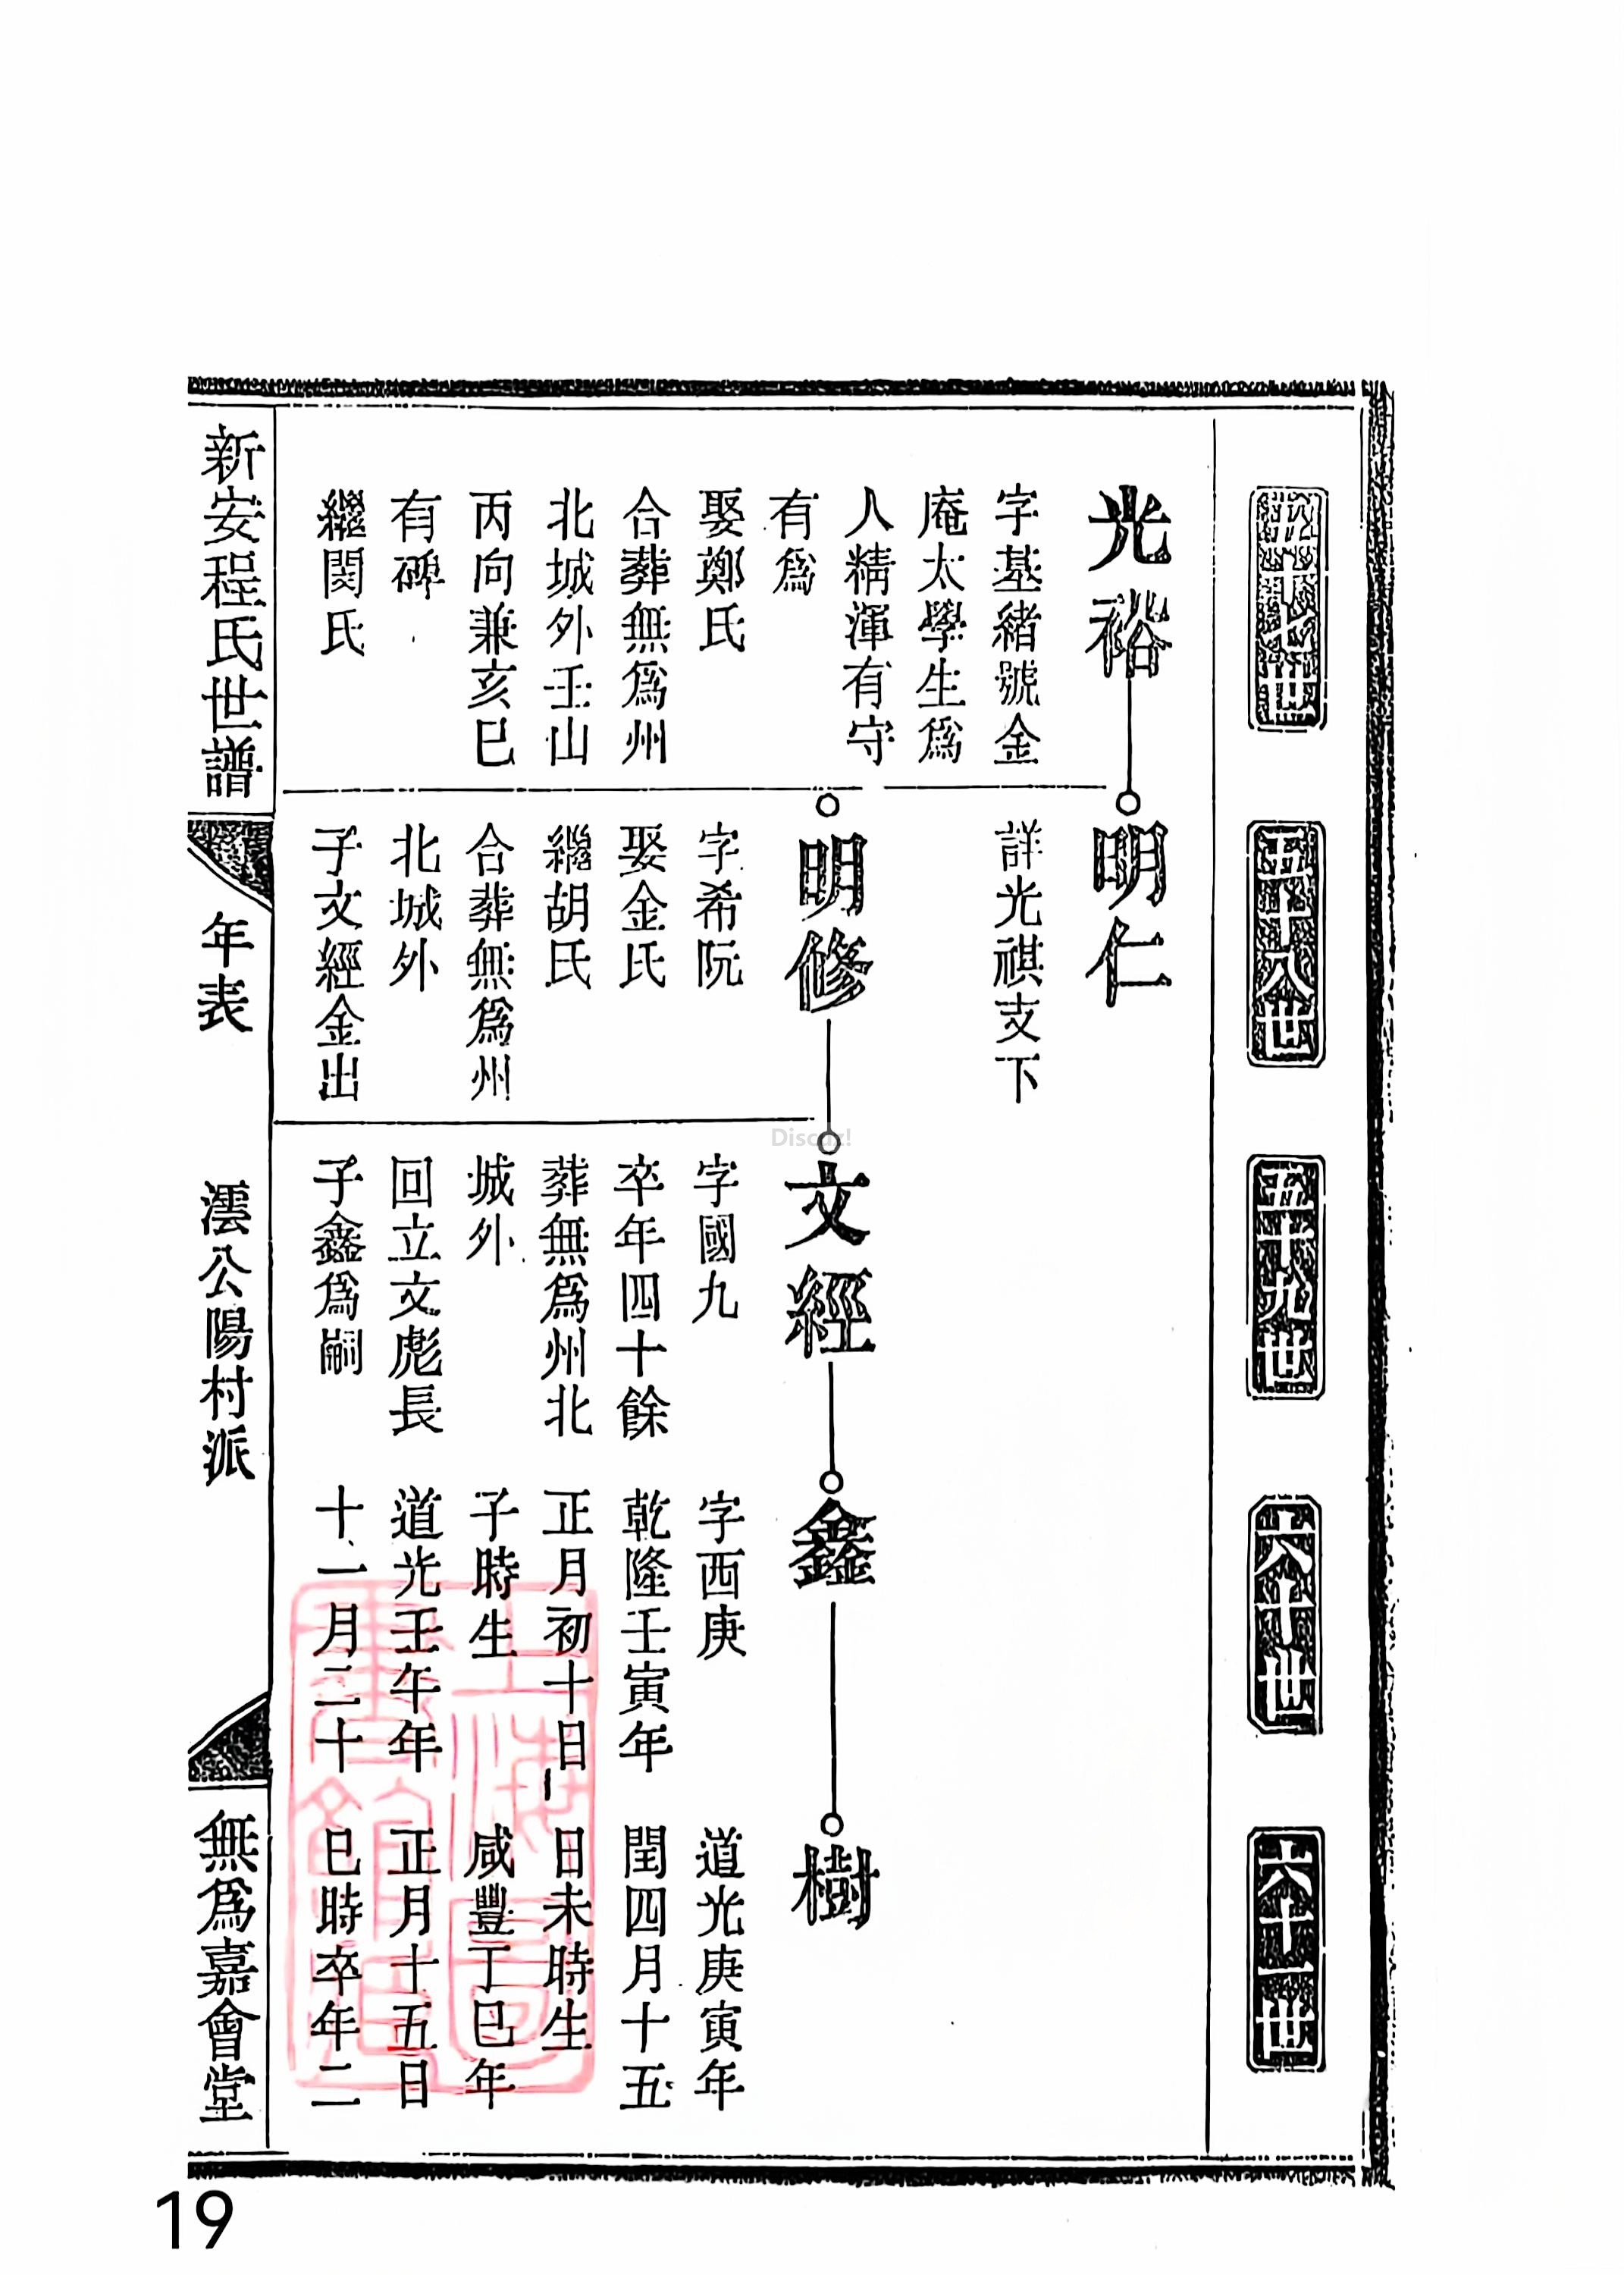 五十七世
五十八世
五十九世
六十世
六十一世
光裕
字基緒號金
庵太學生爲
人精渾有守
有爲
娶鄭氏
合葬無爲州
北城外壬山
丙向兼亥巳
有碑
繼閔氏
明仁
詳光祺支下
明修
字希阮
娶金氏
繼胡氏
合葬無爲州
北城外
子文經金出
文經
字國九
卒年四十餘
葬無爲州北
城外
回立文彪長
子鑫爲嗣
鑫
字西庚
乾隆壬寅年
正月初十日
子時生
道光壬午年
十一月二十
樹
道光庚寅年
閏四月十五
日未時生
咸豐丁巳年
正月十五日
巳時卒年二
新安程氏世譜
年表
澐公陽村派
無爲嘉會堂
上海圖書館藏
Discuz!
19